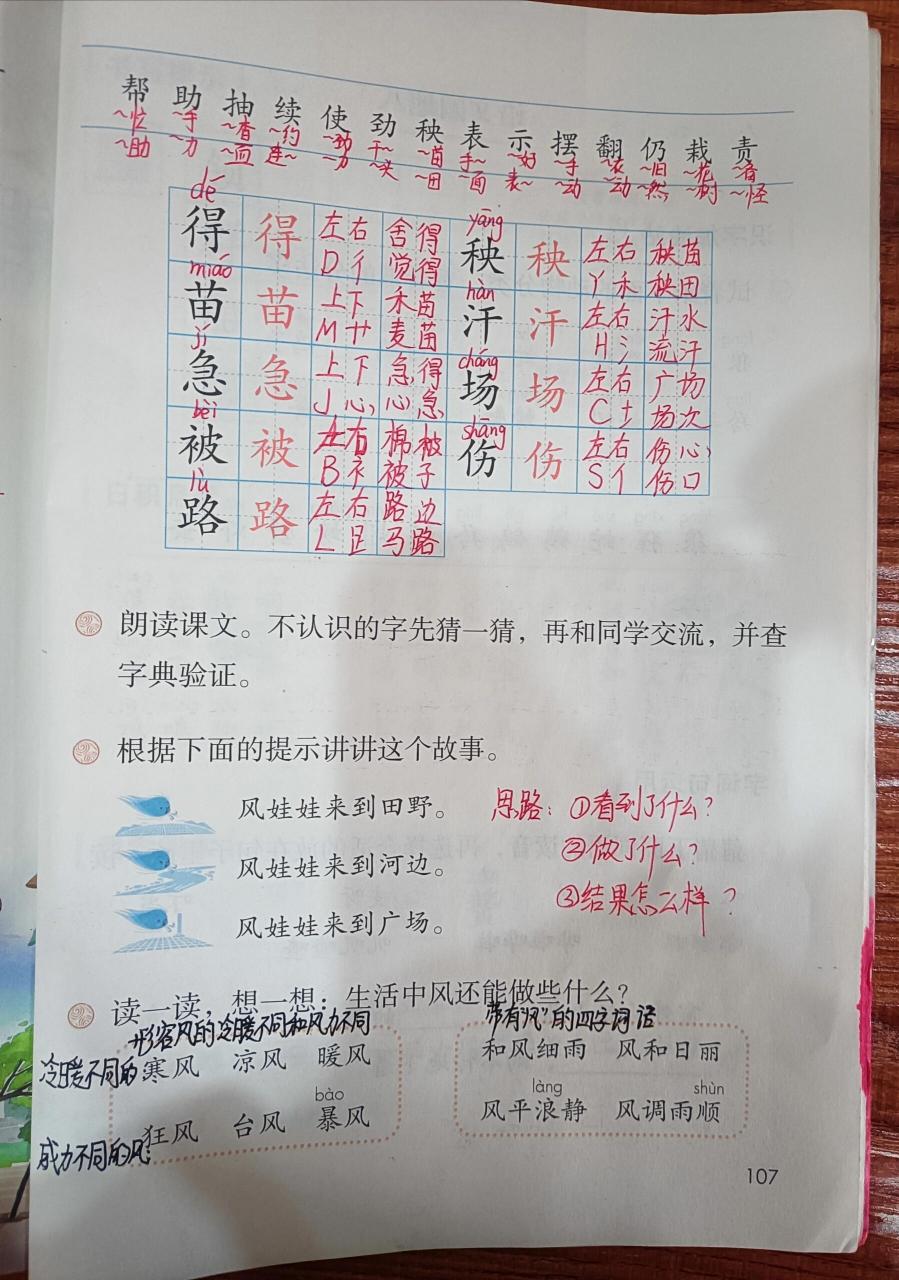 帮 助 抽 续 使 劲 秧 表 示 摆 翻 仍 栽 责
~忙 ~手 ~查 ~约 ~劲 干~ ~苗 手~ ~好 ~手 ~衣 ~旧 ~花 ~音
~助 ~力 ~面 连~ ~力 ~头 ~田 ~面 表~ ~动 ~动 ~然 ~树 ~怪
dé yāng
得 得 左右 舍得 秧 秧 左右 秧苗
D 彳 觉得 Y 禾 秧田
miáo hàn
苗 苗 上下 禾苗 汗 汗 左右 汗水
M 艹 麦苗 H 氵 流汗
jí chǎng
急 急 上下 急得 场 场 左右 广场
J 心 心急 C 土 场次
bèi shāng
被 被 左右 棉被 伤 伤 左右 伤心
B 衤 被子 S 亻 伤口
lù
路 路 左右 路边
L 足 马路
朗读课文。不认识的字先猜一猜，再和同学交流，并查
字典验证。
根据下面的提示讲讲这个故事。
风娃娃来到田野。 思路：①看到了什么？
②做了什么？
风娃娃来到河边。
③结果怎么样？
风娃娃来到广场。
读一读，想一想：生活中风还能做些什么？
形容风的冷暖不同和风力不同 带有“风”的四字词语
冷暖不同的 寒风 凉风 暖风 和风细雨 风和日丽
bào làng shùn
狂风 台风 暴风 风平浪静 风调雨顺
力不同的风：
107